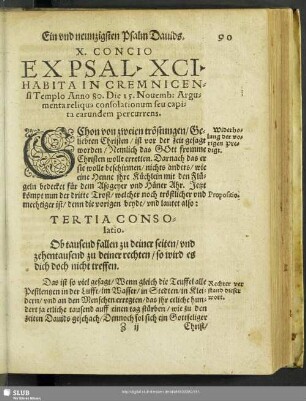 Ein vnd neunzigsten Psalm Dauids. 90
X. CONCIO
EX PSAL. XCI.
HABITA IN CREMNICEN-
si Templo Anno 80. Die 15. Nouemb: Argu-
menta reliqua consolationum seu capi-
ta earundem percurrens.
SChon von zweien tröstungen/ Ge-
liebten Christen/ ist vor der zeit gesagt
worden/ Nemlich das GOtt fromme
Christen wolle erretten. Darnach das er
sie wolle beschirmen/ nichts anders/ wie
eine Henne ihre Küchlein mit den Flü-
geln bedecket für dem Abgeyer vnd Häner Ahr. Jetzt
kömpt nun der dritte Trost/ welcher noch tröstlicher vnd
mechtiger ist/ denn die vorigen beyde/ vnd lautet also:
Widerho-
lung der vo-
rigen Pre-
digt.
Propositio.
TERTIA CONSO-
latio.
Ob tausend fallen zu deiner seiten/ vnd
zehentausend zu deiner rechten/ so wird es
dich doch nicht treffen.
Das ist so viel gesagt/ Wenn gleich die Teuffel alle
Pestilentzen in der Lufft/ im Wasser/ in Stedten/ in Klei-
dern/ vnd an den Menschen erregten/ das ihr etliche hun-
dert ja etliche tausend auff einen tag stürben/ wie zu den
zeiten Dauids geschach/ Dennoch sol sich ein Gottseliger
Rechter ver-
stand dieser
wort.
Z ij Christ/
SLUB